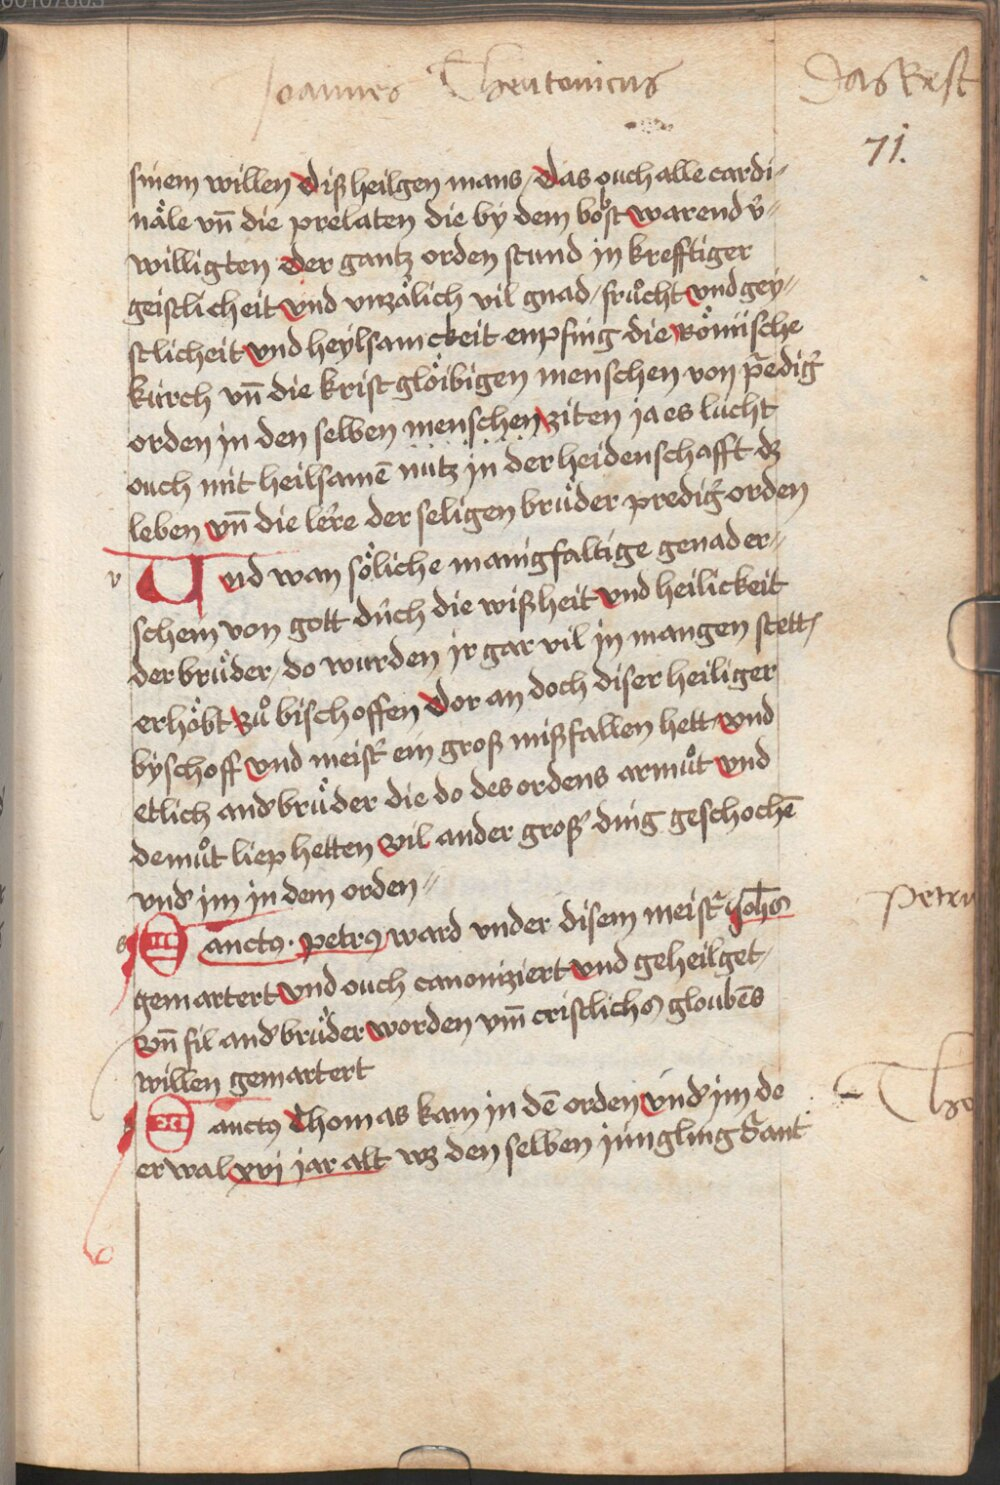 Joannes Theutonicus
Das Rest
71.
sinem willen diß heilgen mans / das ouch alle cardi-
näle vn̄ die prelaten die by dem bo̊st warend v̾-
willigten der gantz orden stund in krefftiger
geistlicheit vnd vnzälich vil gnad / frůcht vnd gey-
stlicheit vnd heylsamckeit enpfing die Römische
kirch vn̄ die krist glöibigen menschen von p̄edig̾
orden in den selben menschen ziten ja es lücht
ouch mit heilsamē nutz in der heidenschafft dz
leben vn̄ die lere der seligen brüder predig̾ orden
v Und wan söliche manigfaltige genad er-
schein von gott durch die wißheit vnd heilickeit
der brüder / do wurden ir gar vil in mangen stett
erhöbt zů bischoffen dor an doch diser heiliger
byschoff vnd meist̾ ein groß mißfallen hett vnd
etlich and̾ brüder die do des ordens armůt vnd
demůt liep hetten vil ander groß ding geschochē
vnd̾ im in dem orden
Petru
Sanctꝰ petrꝰ ward vnder disem meist̾ Joh̄s
gemartert vnd ouch canoniziert vnd geheilget
vn̄ fil and̾ brüder worden vm̄ cristlichs gloubēs
willen gemartert
Tho
Sanctꝰ Thomas kam in dē orden vnd̾ im do
er wal xvj jar alt wz den selben jungling